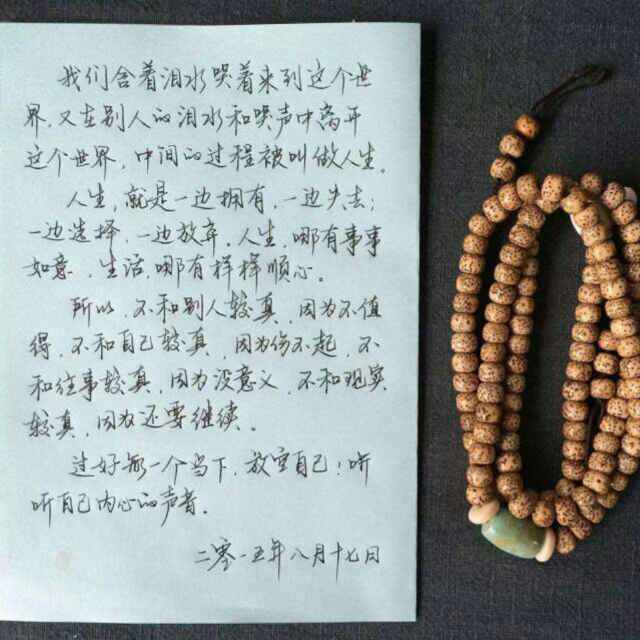 我们含着泪水哭着来到这个世
界，又在别人的泪水和哭声中离开
这个世界，中间的过程被叫做人生。
人生，就是一边拥有，一边失去；
一边选择，一边放弃。人生，哪有事事
如意，生活，哪有样样顺心。
所以，不和别人较真，因为不值
得，不和自己较真，因为伤不起，不
和往事较真，因为没意义，不和现实
较真，因为还要继续。
过好每一个当下，放空自己！听
听自己内心的声音。
二零一五年八月十七日